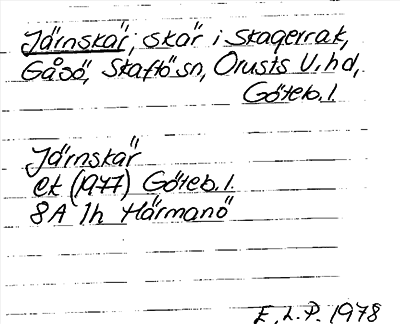 Järnskär, skär i Skagerrak,
Gåsö, Skaftö sn, Orusts V. hd,
Göteb. l.
Järnskär
ek (1977) Göteb. l.
8A 1h Härmanö
E. L. P. 1978